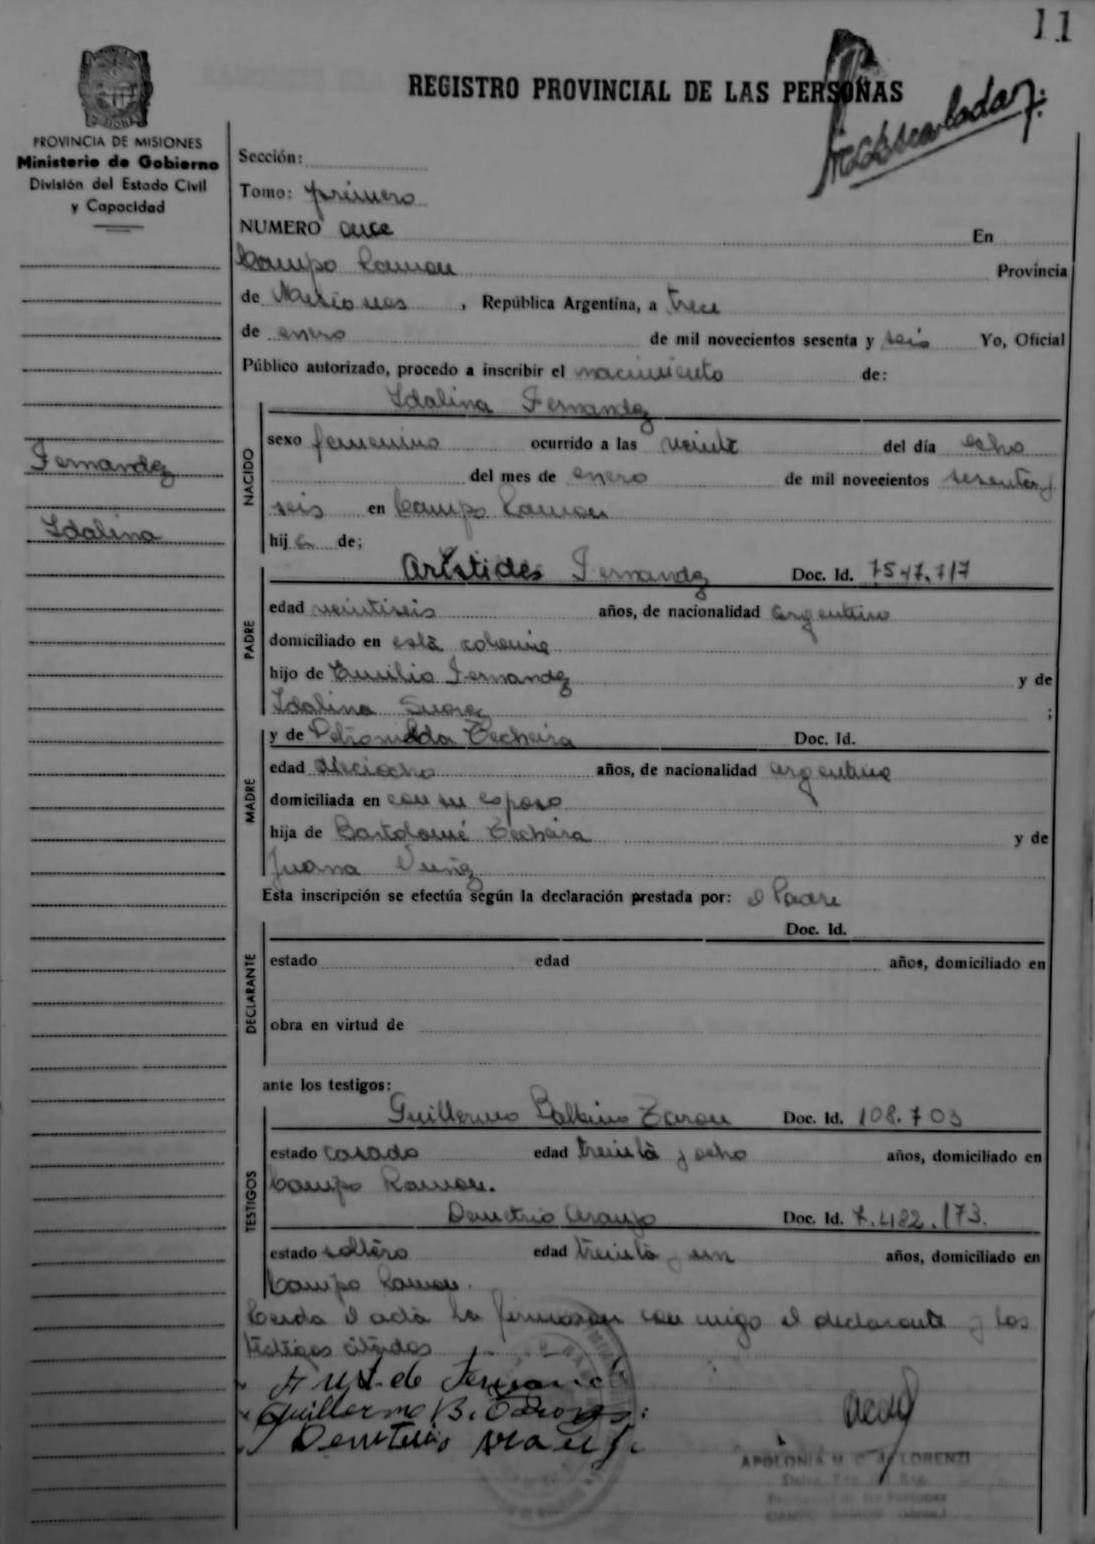 11
REGISTRO PROVINCIAL DE LAS PERSONAS
PROVINCIA DE MISIONES
Ministerio de Gobierno
División del Estado Civil
y Capacidad
Sección:
Tomo: primero
NUMERO once En
Campo Ramon Provincia
de Misiones , República Argentina, a trece
de enero de mil novecientos sesenta y seis Yo, Oficial
Público autorizado, procedo a inscribir el nacimiento de:
Fernandez
Idalina
NACIDO
Idalina Fernandez
sexo femenino ocurrido a las veinte del día ocho
del mes de enero de mil novecientos sesenta y
seis en Campo Ramon
hij a de;
PADRE
Arístides Fernandez Doc. Id. 7547.717
edad veintiseis años, de nacionalidad argentino
domiciliado en esta colonia
hijo de Emilio Fernandez y de
Idalina Suarez ;
MADRE
y de Petronilda Techeira Doc. Id.
edad dieciocho años, de nacionalidad argentina
domiciliada en con su esposo
hija de Bartolomé Techeira y de
Juana
Esta inscripción se efectúa según la declaración prestada por: el Padre
DECLARANTE
Doc. Id.
estado edad años, domiciliado en
obra en virtud de
ante los testigos:
TESTIGOS
Guillermo Balbino Doc. Id. 108.703
estado casado edad treinta y ocho años, domiciliado en
Campo Ramon.
Demetrio Araujo Doc. Id. 7.482.173.
estado soltero edad treinta y un años, domiciliado en
Campo Ramon.
Leida el acta la firmaron con migo el declarante y los
testigos citados
Guillermo B.
APOLONIA M. C. de LORENZI